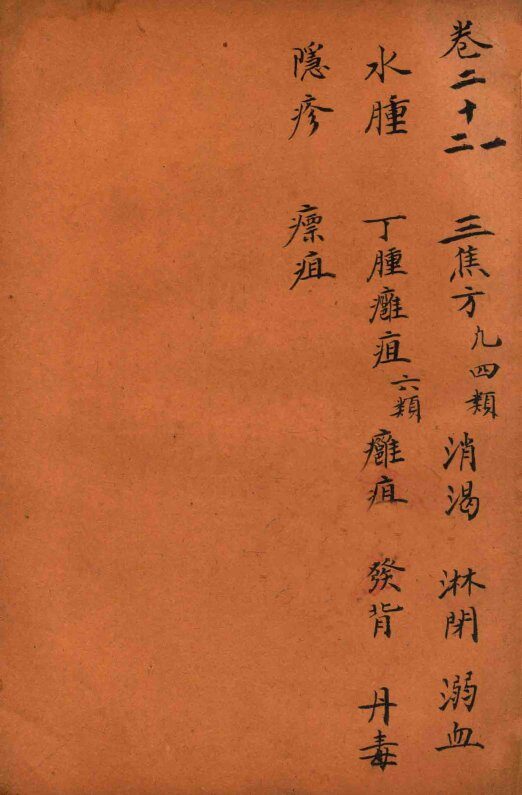 卷二十一二 三焦方凡四類 消渴 淋閉 溺血
水腫 丁腫癰疽六類 癰疽 發背 丹毒
隱疹 瘭疽